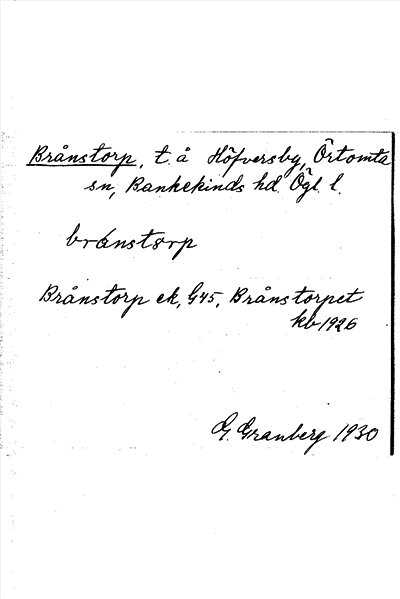 Brånstorp, t. å Höfversby, Örtomta
sn, Bankekinds hd. Ögl. l.
brånstorp
Brånstorp ek, G45, Brånstorpet
kb 1926
G. Granberg 1930